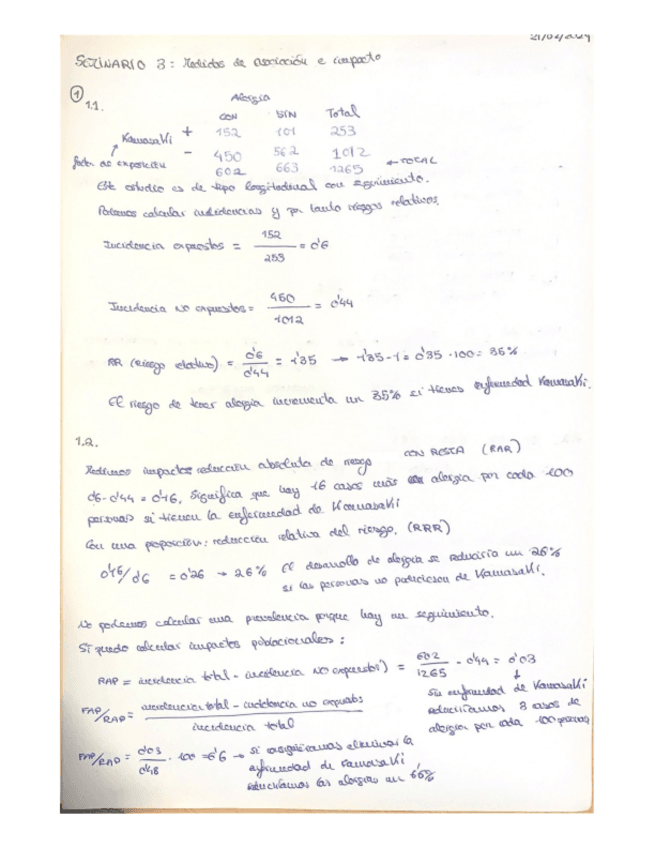 21/02/2024
SEMINARIO 3: Medidas de asociación e impacto
1
1.1.
Alergia
CON SIN Total
Kawasaki + 152 101 253
factor de exposición - 450 562 1012
602 663 1265 ← TOTAL
Este estudio es de tipo longitudinal con seguimiento.
Podemos calcular incidencias y por tanto riesgos relativos.
Incidencia expuestos = 152/253 = 0'6
Incidencia NO expuestos = 450/1012 = 0'44
RR (Riesgo relativo) = 0'6/0'44 = 1'35 → 1'35-1 = 0'35 · 100 = 35%
El riesgo de tener alergia incrementa un 35% si tienes enfermedad Kawasaki.
1.2.
Medimos impactos reducción absoluta de riesgo CON RESTA (RAR)
0'6-0'44 = 0'16. Significa que hay 16 casos más de alergia por cada 100
personas si tienen la enfermedad de Kawasaki
Con una proporción: reducción relativa del riesgo. (RRR)
0'16/0'6 = 0'26 → 26% el desarrollo de alergia se reduciría un 26%
si las personas no padeciesen de Kawasaki.
No podemos calcular una prevalencia porque hay un seguimiento.
Sí puedo calcular impactos poblacionales:
RAP = incidencia total - incidencia NO expuestos) = 602/1265 - 0'44 = 0'03
Sin enfermedad de Kawasaki
reduciríamos 3 casos de
alergia por cada 100 personas
FAP/RAP = incidencia total - incidencia no expuestos / incidencia total
FAP/RAP = 0'03/0'48 · 100 = 6'6 → si consiguiéramos eliminar la
enfermedad de Kawasaki
reduciríamos las alergias un 6'6%